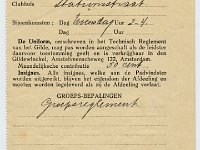 Clubhuis Stationsstraat
Bijeenkomsten: Dag woensdag Uur 2-4.
Dag Uur
De Uniform, omschreven in het Technisch Reglement
van het Gilde, mag pas worden aangeschaft als de leidster
daarvoor toestemming geeft en is verkrijgbaar in den
Gildewinkel, Amstelveenscheweg 122, Amsterdam.
Maandelijksche contributie 50 cent
Insignes. Insignes, welke aan de Padvindster
worden uitgereikt, blijven het eigendom der Afdeeling en
moeten worden ingeleverd, indien zij de Afdeeling verlaat.
GROEPS-BEPALINGEN
Groepsreglement